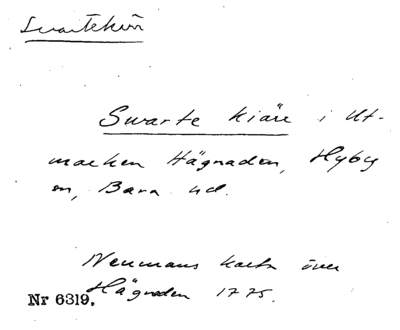 Svartekärr
Swarte kiäre i Ut-
marken Hägnaden, Hyby
sn, Bara hd.
Neumans karta över
Hägnaden 1775.
Nr 6319.